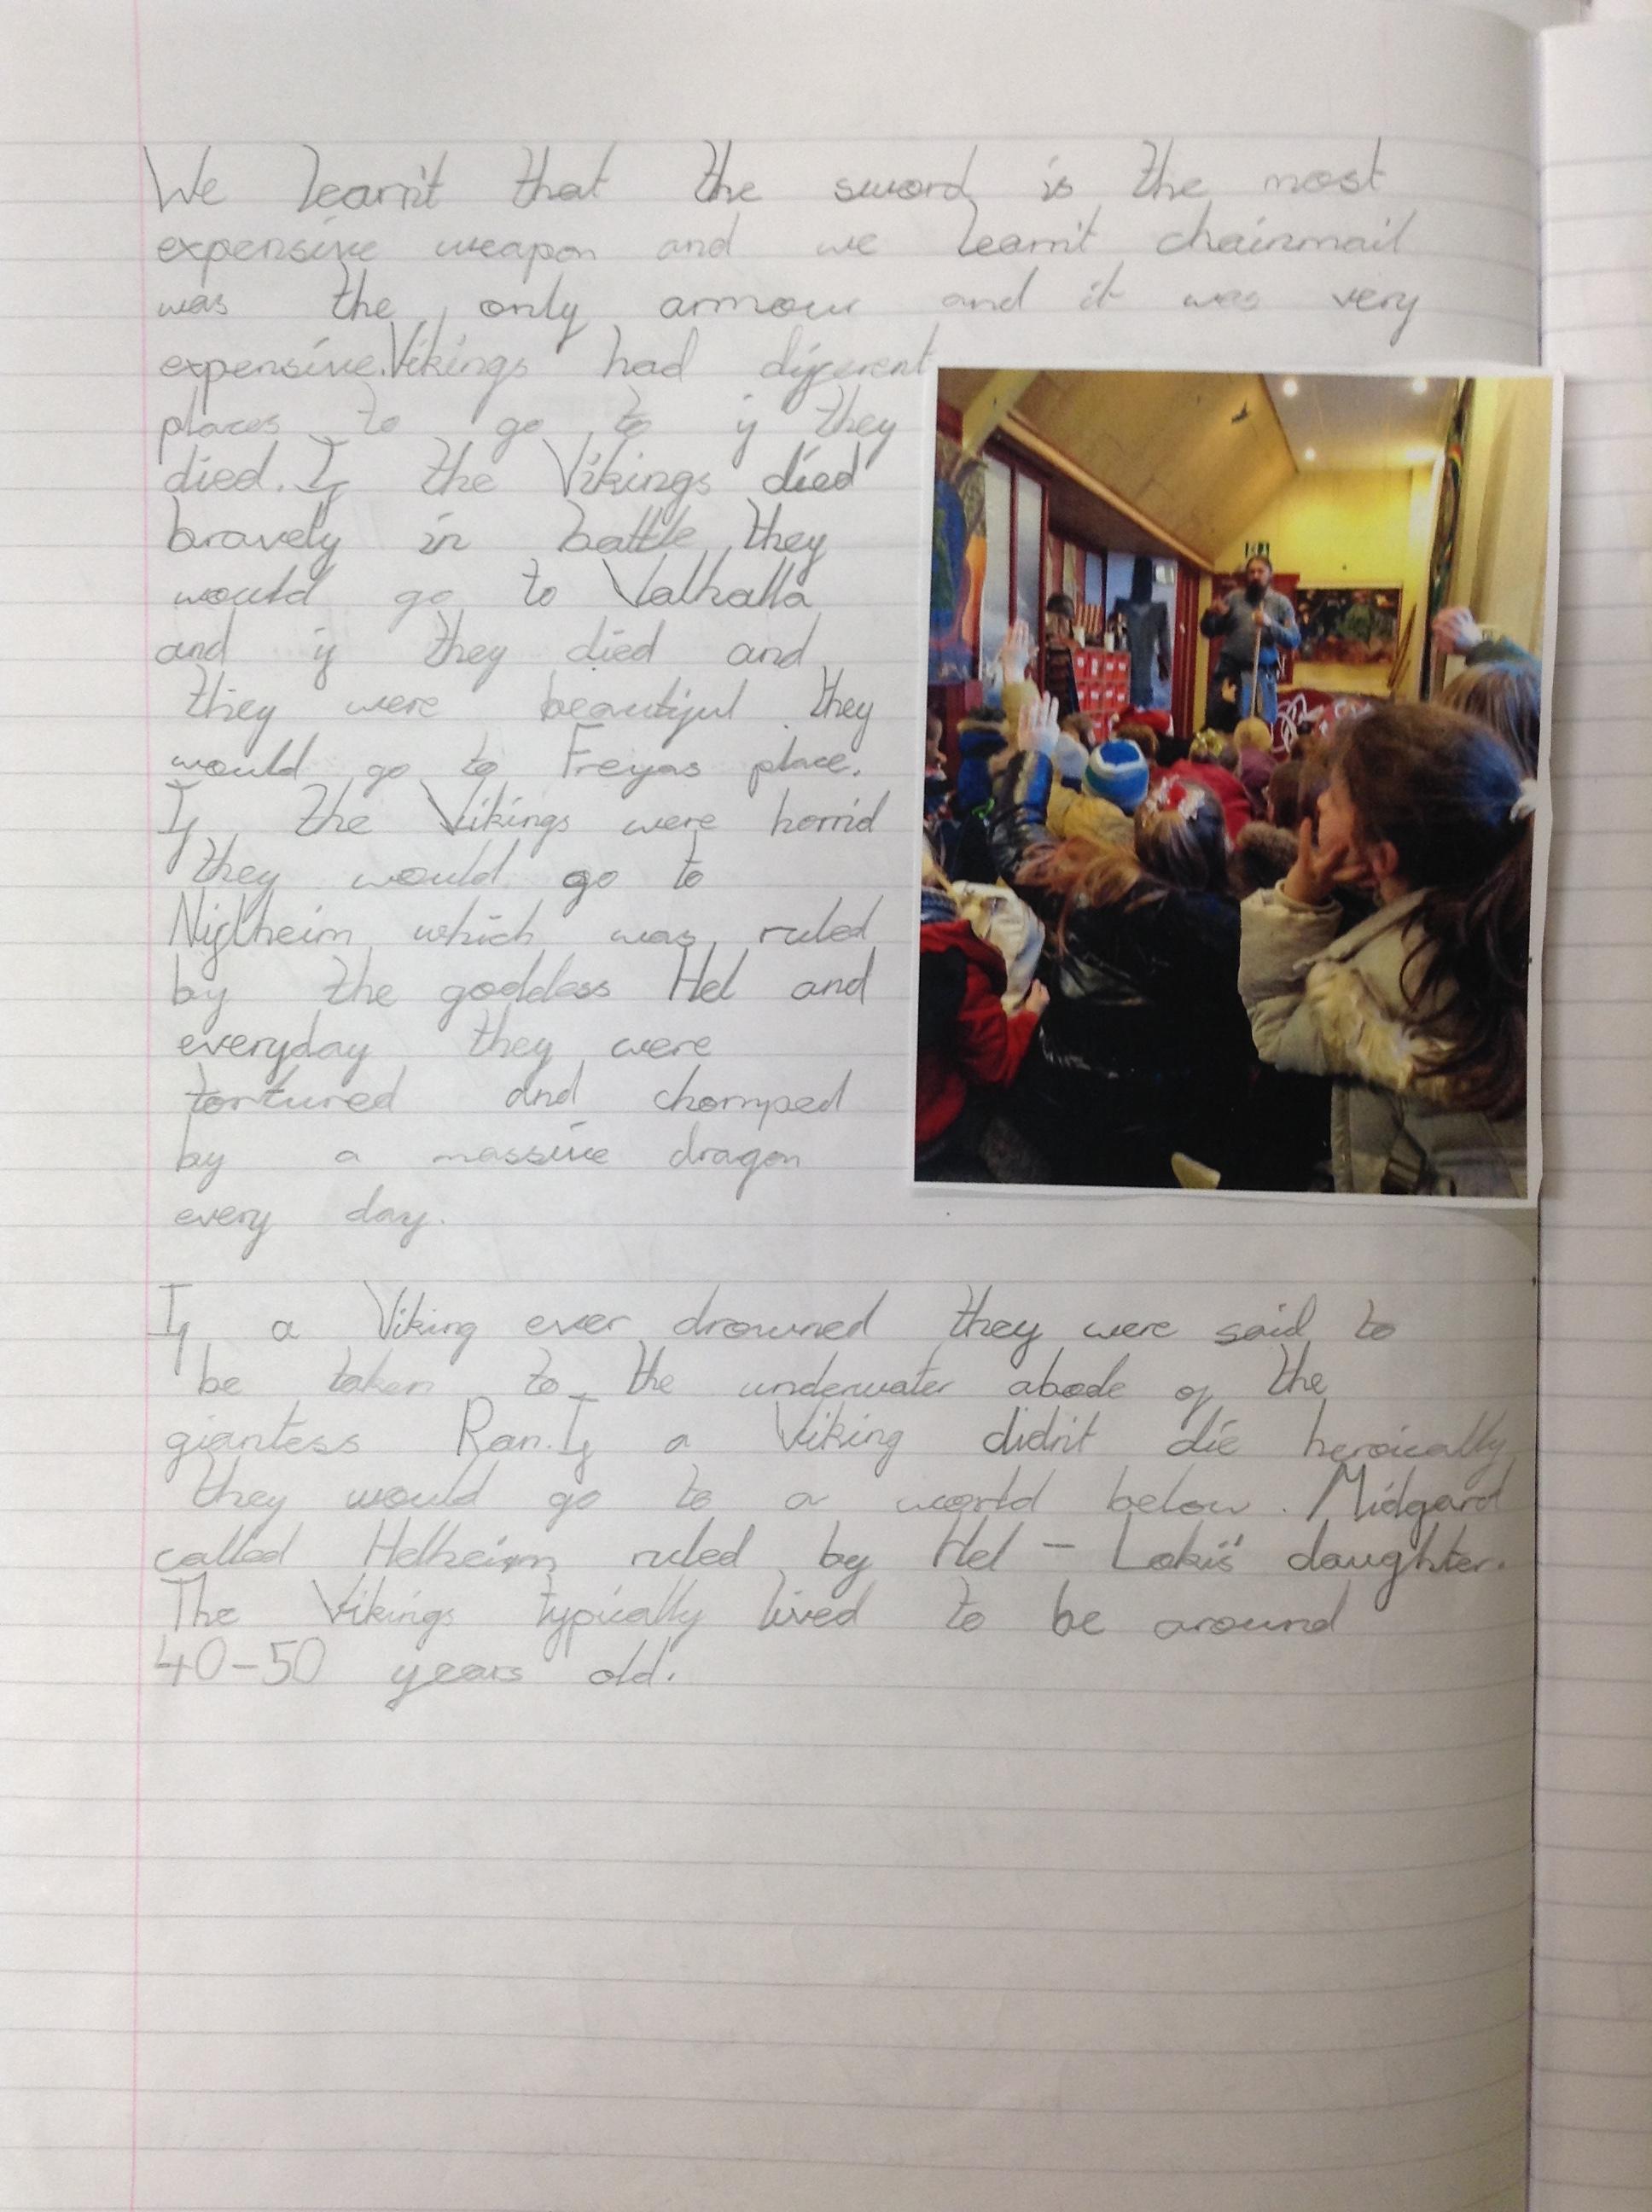 We learn't that the sword is the most
expensive weapon and we learn't chainmail
was the only armour and it was very
expensive. Vikings had different
places to go to if they
died. If the Vikings died
bravely in battle they
would go to Valhalla
and if they died and
they were beautiful they
would go to Freyas place.
If the Vikings were horrid
they would go to
Niflheim which was ruled
by the goddess Hel and
everyday they were
tortured and chomped
by a massive dragon
every day.
If a Viking ever drowned they were said to
be taken to the underwater abode of the
giantess Ran. If a Viking didn't die heroically
they would go to a world below Midgard
called Helheim ruled by Hel - Loki's daughter.
The Vikings typically lived to be around
40-50 years old.